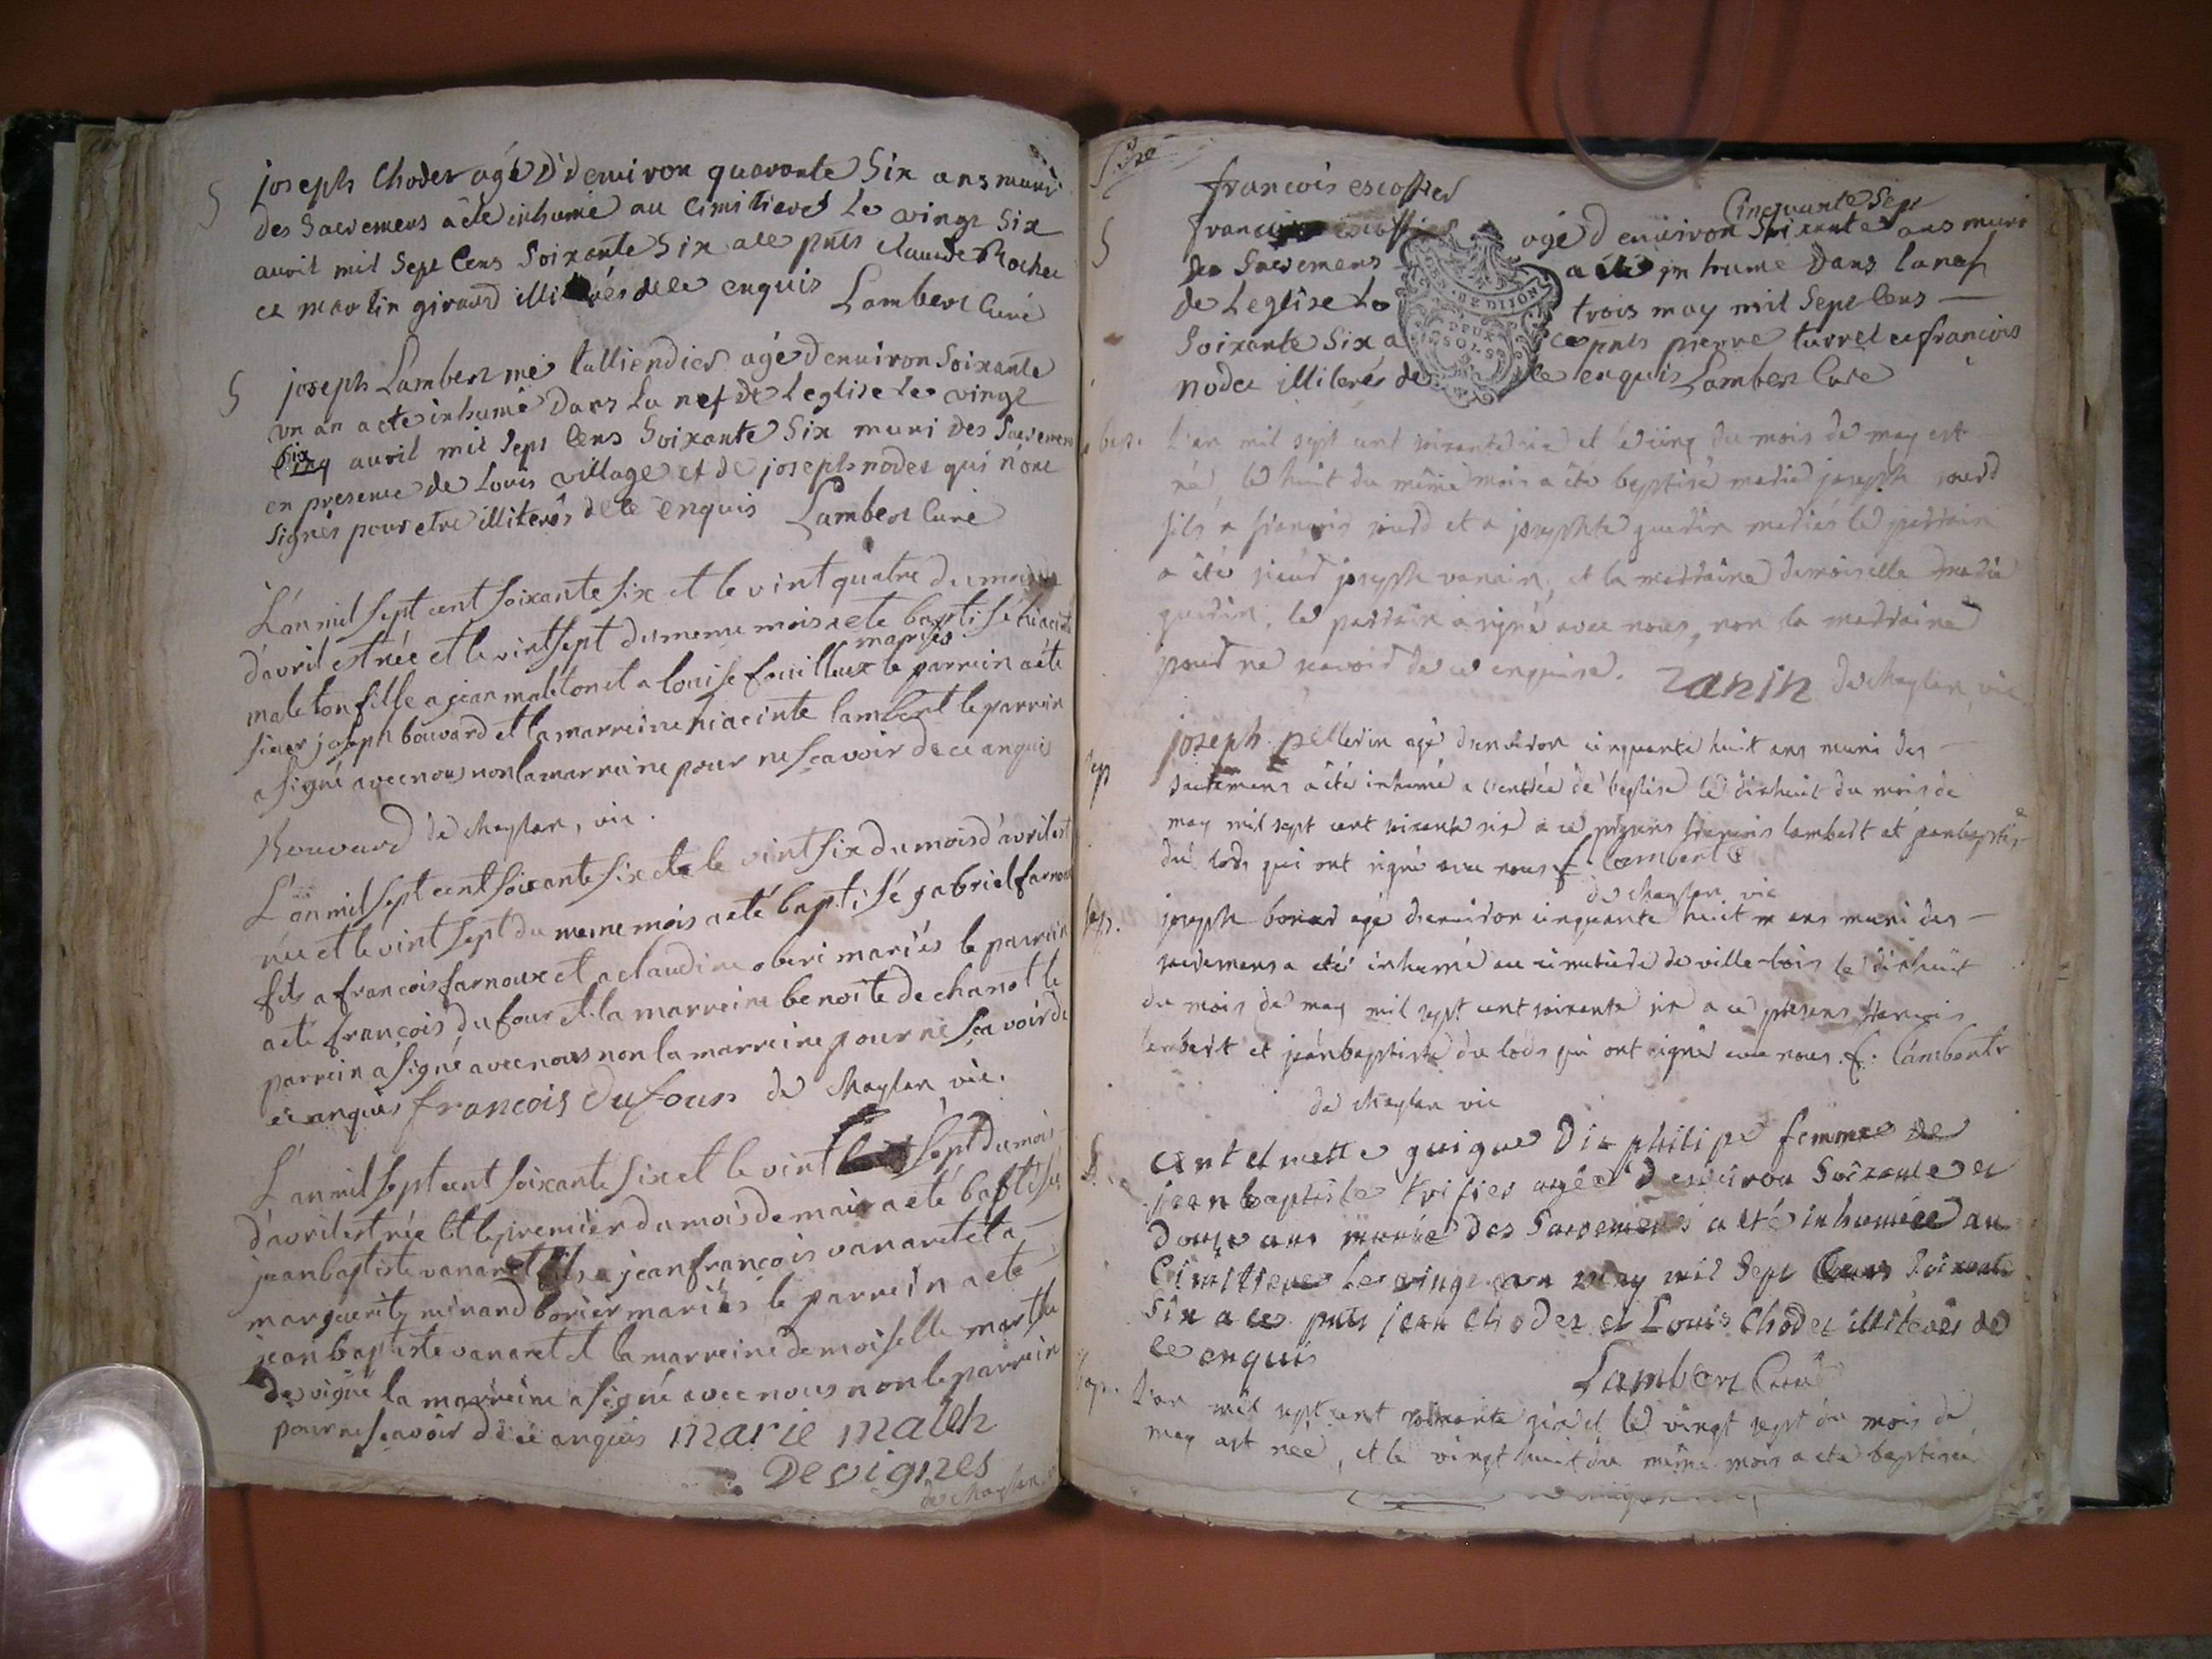 S joseph Choder agé D'denviron quarante Six ans muni
des Sacremens a été inhumé au Cimitiere le vingt Six
auril mil Sept Cens Soixante Six a ce pnts claude Rochet
et martin giraud illiterés de ce enquis Lambert Curé
S joseph Lambert me talliendier agé denuiron Soixante
vn an a eté inhumé Dans La nef de Leglise le vingt
Six
Cinq auril mil Sept Cens Soixante Six muni des Sacremens
en presence de Louis village et de joseph nodet qui n'ont
signés pour etre illiterés de ce enquis Lambert Curé
L'an mil sept cent soixante six et le vint quatre du mois
d'avril est née et le vint sept du meme mois a ete baptisé hiacinte
mariés
maleton fille a jean maleton et a louise fouilloux le parrein a été
sieur joseph bouvard et la marreine hiacinte lambert le parrein
a signé avec nous non la marreine pour ne sçavoir de ce anquis
Bouvard de Meylan, vic.
L'an mil sept cent soixante six et le vint six du mois d'avril est
née et le vint sept du meme mois a eté baptisé gabriel farnoux
fils a francois farnoux et a claudine oberi mariés le parrein
a eté françois dufour et la marreine benoite de chanot le
parrein a signé avec nous non la marreine pour ne sçavoir de
ce anquis francois dufour de Meylan, vic.
L'an mil sept cent soixante six et le vint sept du mois
d'avril est née et le premier du mois de mai a eté baptisé
jean baptiste vanaret fils a jean francois vanaret et a
marguerite minand borier mariés le parrein a ete
jean baptiste vanaret et la marreine demoiselle marthe
de vigne la marreine a signé avec nous non le parrein
pour ne scavoir de ce anquis marie
Devignes
de Meylan
francois escoffier
Cinquante Sept
S francois escoffier agé denuiron Soixante ans muni
des Sacremens a eté inhumé Dans la nef
de Leglise Le trois may mil Sept Cens
Soixante Six a ce pnts pierre turrel et francois
nodet illiterés de ce enquis Lambert Curé
GEN. DE DIJON
DEUX
SOLS
bap. L'an mil sept cent soixante six et le cinq du mois de may est
né, le huit du même mois a été baptisé marie joseph
fils a françois et a josephte guerin mariés le parrain
a été sieur joseph vanin, et la marraine demoiselle marie
guerin, le parrain a signé avec nous, non la marraine
pour ne scavoir de ce enquise. vanin de Meylan, vic
sep joseph pellerin agé d'environ cinquante huit ans muni des
sacremens a été inhumé a l'entrée de l'eglise le dixhuit du mois de
may mil sept cent soixante six a ce présens françois lambert et jeanbaptiste
du lods qui ont signé avec nous f. lambert
de Meylan vic
sep. joseph agé d'environ cinquante huit ans muni des
sacremens a été inhumé au cimetiere de ville-bois le dixhuit
du mois de may mil sept cent soixante six a ce présens françois
lambert et jeanbaptiste du lods qui ont signé avec nous. f. lambert
de Meylan vic
S. antelmette guigue Dit philipe femme de
jean baptiste agée denuiron Soixante et
Douze ans munie des Sacremens a eté inhumée au
Cimitiere le vingt un may mil Sept Cens Soixante
Six a ce pnts jean Choder et Louis Choder illiterés de
ce enquis Lambert Curé
bap. L'an mil sept cent soixante six et le vingt sept du mois de
may est née, et le vingt huit du même mois a été baptisée